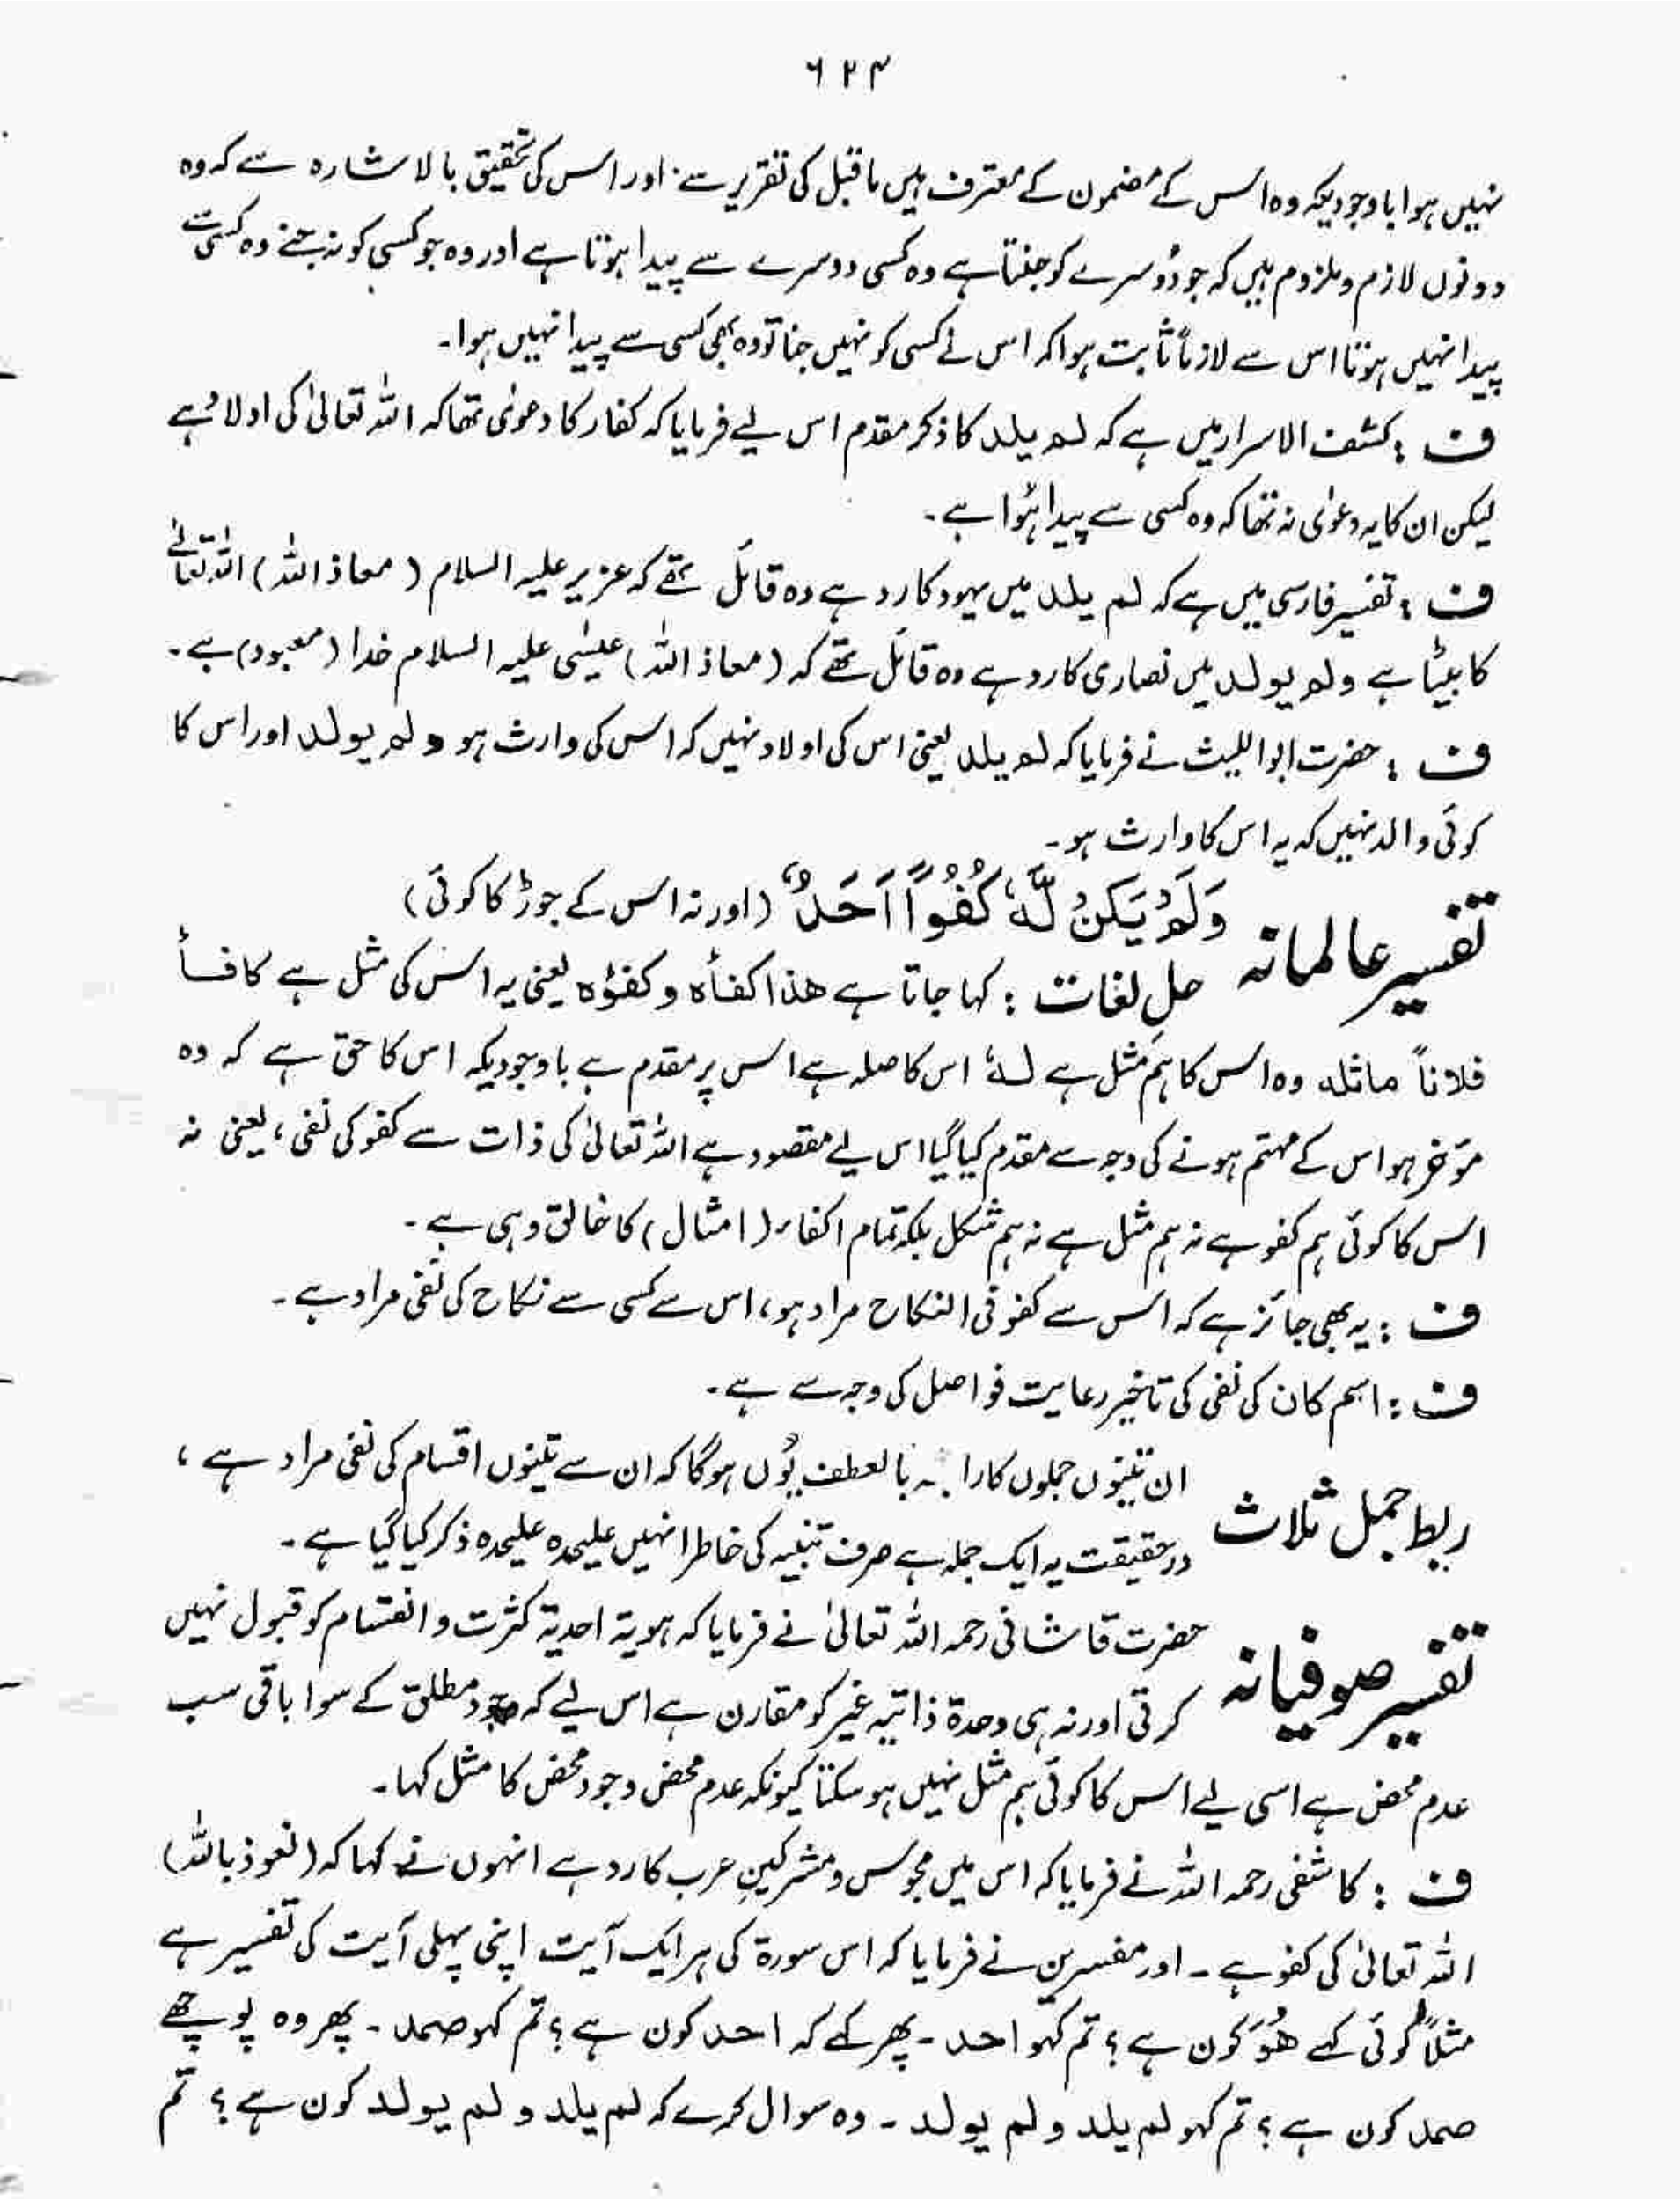 ۶۲۴
نہیں ہوا باوجودیکہ وہ اس کے مضمون کے معترف ہیں ماقبل کی تقریر سے۔ اور اس کی تحقیق بالاشارہ سے کہ وہ
دونوں لازم و ملزوم ہیں کہ جو دُوسرے کو جنتا ہے وہ کسی دوسرے سے پیدا ہوتا ہے اور وہ جو کسی کو نہ جنے وہ کسی سے
پیدا نہیں ہوتا اس سے لازماً ثابت ہوا کہ اس نے کسی کو نہیں جنا تو وہ بھی کسی سے پیدا نہیں ہوا۔
ف : کشف الاسرار میں ہے کہ لم یلد کا ذکر مقدم اس لیے فرمایا کہ کفار کا دعوٰی تھا کہ اللہ تعالیٰ کی اولاد ہے
لیکن ان کا یہ دعوٰی نہ تھا کہ وہ کسی سے پیدا ہُوا ہے۔
ف : تفسیر فارسی میں ہے کہ لم یلد میں یہود کا رد ہے وہ قائل تھے کہ عزیر علیہ السلام (معاذ اللہ) اللہ تعالےٰ
کا بیٹا ہے ولم یولد میں نصاری کا رد ہے وہ قائل تھے کہ (معاذ اللہ) عیسٰی علیہ السلام خدا (معبود) ہے۔
ف : حضرت ابو اللیث نے فرمایا کہ لم یلد یعنی اس کی اولاد نہیں کہ اس کی وارث ہو ولم یولد اور اس کا
کوئی والد نہیں کہ یہ اس کا وارث ہو۔
تفسیر عالمانہ وَلَمْ یَکُنْ لَّهٗ کُفُوًا اَحَدٌ (اور نہ اس کے جوڑ کا کوئی)
حل لغات : کہا جاتا ہے هذا کفأه و کفؤه یعنی یہ اس کی مثل ہے کافأ
فلاناً ماثله وہ اس کا ہم مثل ہے لهٗ اس کا صلہ ہے اس پر مقدم ہے باوجودیکہ اس کا حق ہے کہ وہ
مؤخر ہو اس کے مہتم ہونے کی وجہ سے مقدم کیا گیا اس لیے مقصود ہے اللہ تعالیٰ کی ذات سے کفو کی نفی، یعنی نہ
اس کا کوئی ہم کفو ہے نہ ہم مثل ہے نہ ہم شکل بلکہ تمام اکفاء (امثال) کا خالق وہی ہے۔
ف : یہ بھی جائز ہے کہ اس سے کفو فی النکاح مراد ہو، اس سے کسی سے نکاح کی نفی مراد ہے۔
ف : اسم کان کی نفی کی تاخیر رعایت فواصل کی وجہ سے ہے۔
ربط جمل ثلاث ان تینوں جملوں کا بالعطف یُوں ہوگا کہ ان سے تینوں اقسام کی نفی مراد ہے،
درحقیقت یہ ایک جملہ ہے صرف تنبیہ کی خاطر انہیں علیحدہ علیحدہ ذکر کیا گیا ہے۔
تفسیر صوفیانہ حضرت قاشانی رحمہ اللہ تعالیٰ نے فرمایا کہ ہویۃ احدیۃ کثرت و انقسام کو قبول نہیں
کرتی اور نہ ہی وحدۃ ذاتیہ غیر کو مقارن ہے اس لیے کہ وجود مطلق کے سوا باقی سب
عدم محض ہے اسی لیے اس کا کوئی ہم مثل نہیں ہو سکتا کیونکہ عدم محض وجود محض کا مثل کہا۔
ف : کاشفی رحمہ اللہ نے فرمایا کہ اس میں مجوس و مشرکین عرب کا رد ہے انہوں نے کہا کہ (نعوذ باللہ)
اللہ تعالیٰ کی کفو ہے۔ اور مفسرین نے فرمایا کہ اس سورۃ کی ہر ایک آیت اپنی پہلی آیت کی تفسیر ہے
مثلاً کوئی کہے هُوَ کون ہے؟ تم کہو احد۔ پھر کہے کہ احد کون ہے؟ تم کہو صمد۔ پھر وہ پوچھے
صمد کون ہے؟ تم کہو لم یلد و لم یولد۔ وہ سوال کرے کہ لم یلد و لم یولد کون ہے؟ تم